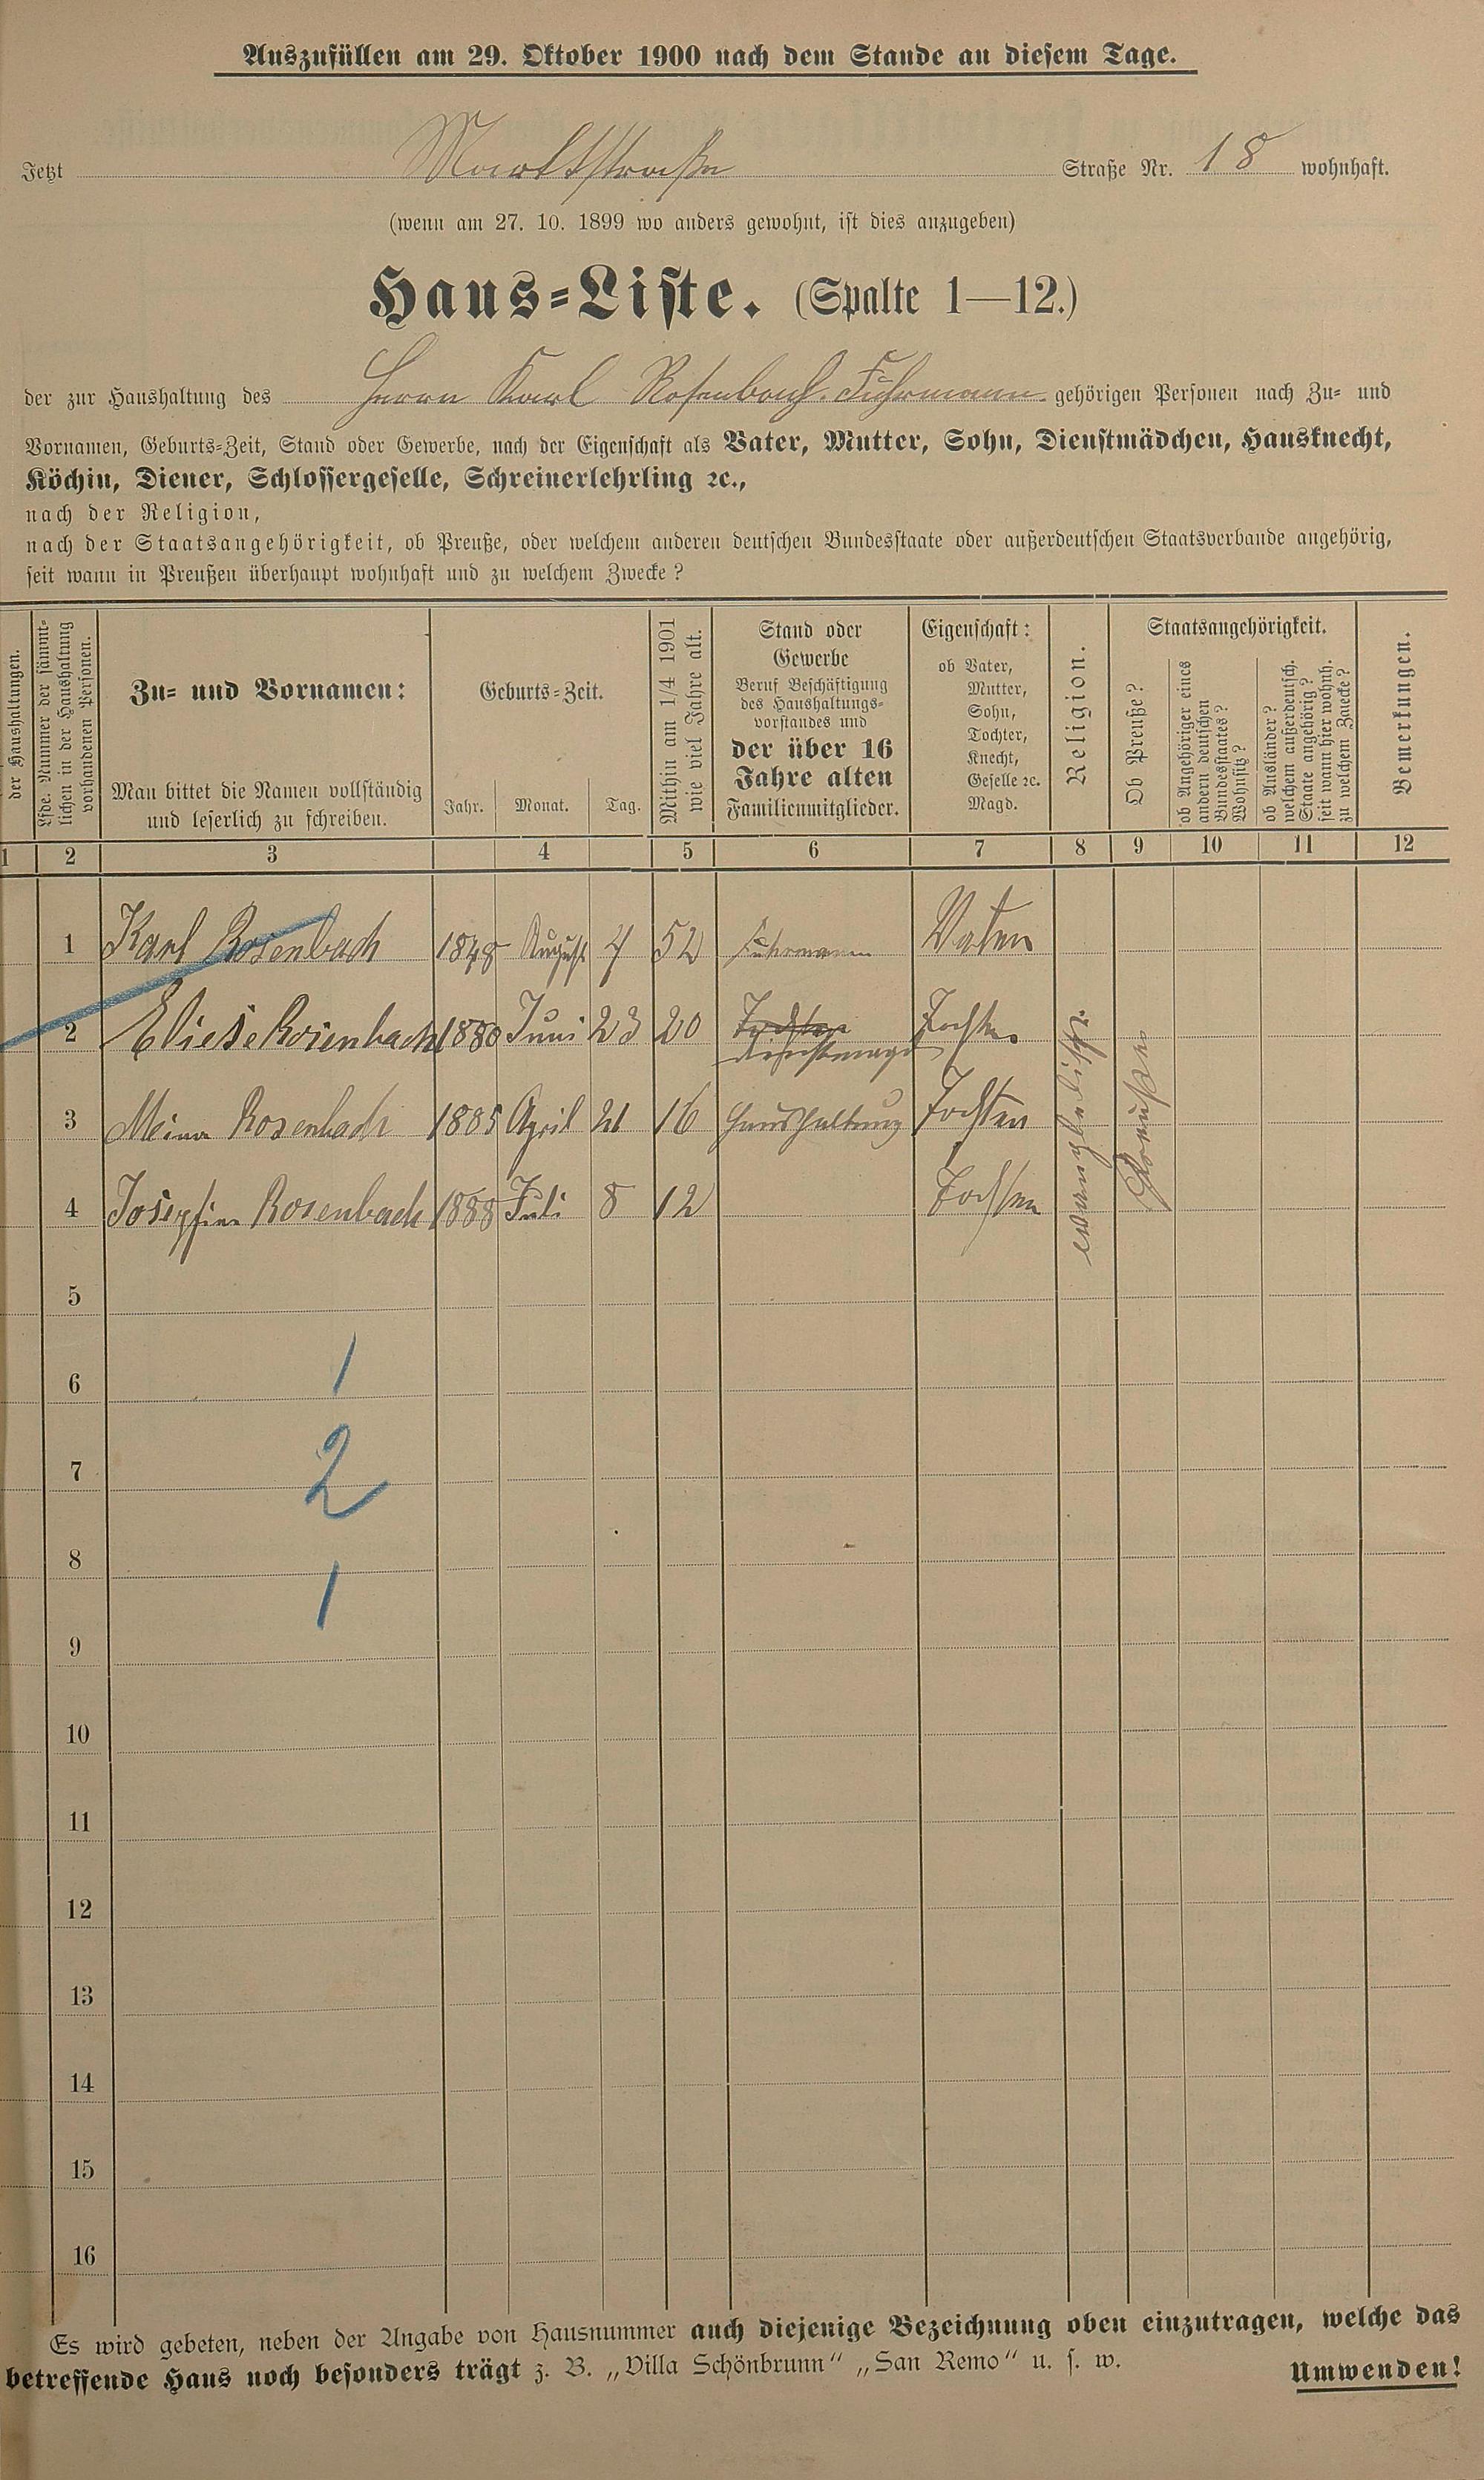 Auszufüllen am 29. Oktober 1900 nach dem Stande an diesem Tage.
Jetzt Marktstraße Straße Nr. 18 wohnhaft.
(wenn am 27. 10. 1899 wo anders gewohnt, ist dies anzugeben)
Haus-Liste. (Spalte 1—12.)
der zur Haushaltung des Herrn Karl Rosenbach. Fuhrmann. gehörigen Personen nach Zu- und
Vornamen, Geburts-Zeit, Stand oder Gewerbe, nach der Eigenschaft als Vater, Mutter, Sohn, Dienstmädchen, Hausknecht,
Köchin, Diener, Schlossergeselle, Schreinerlehrling ꝛc.,
nach der Religion,
nach der Staatsangehörigkeit, ob Preuße, oder welchem anderen deutschen Bundesstaate oder außerdeutschen Staatsverbande angehörig,
seit wann in Preußen überhaupt wohnhaft und zu welchem Zwecke?
der Haushaltungen.
Lfde. Nummer der sämmt-
lichen in der Haushaltung
vorhandenen Personen.
Zu- und Vornamen:
Man bittet die Namen vollständig
und leserlich zu schreiben.
Geburts-Zeit.
Jahr. Monat. Tag.
Mithin am 1/4 1901
wie viel Jahre alt.
Stand oder
Gewerbe
Beruf Beschäftigung
des Haushaltungs-
vorstandes und
der über 16
Jahre alten
Familienmitglieder.
Eigenschaft:
ob Vater,
Mutter,
Sohn,
Tochter,
Knecht,
Geselle ꝛc.
Magd.
Religion.
Staatsangehörigkeit.
Ob Preuße?
ob Angehöriger eines
andern deutschen
Bundesstaates?
Wohnsitz?
ob Ausländer?
welchem außerdeutsch.
Staate angehörig?
seit wann hier wohnh.
zu welchem Zwecke?
Bemerkungen.
1 2 3 4 5 6 7 8 9 10 11 12
1 Karl Rosenbach 1848 August 4 52 Fuhrmann Vater
2 Eliese Rosenbach 1880 Juni 23 20 Tochter Tochter
Dienstmagd
3 Mina Rosenbach 1885 April 21 16 Haushaltung Tochter
4 Josephine Rosenbach 1888 Juli 8 12 Tochter
evangelisch
Preußen
5
6
1
7
2
8
1
9
10
11
12
13
14
15
16
Es wird gebeten, neben der Angabe von Hausnummer auch diejenige Bezeichnung oben einzutragen, welche das
betreffende Haus noch besonders trägt z. B. „Villa Schönbrunn“ „San Remo“ u. s. w.
Umwenden!